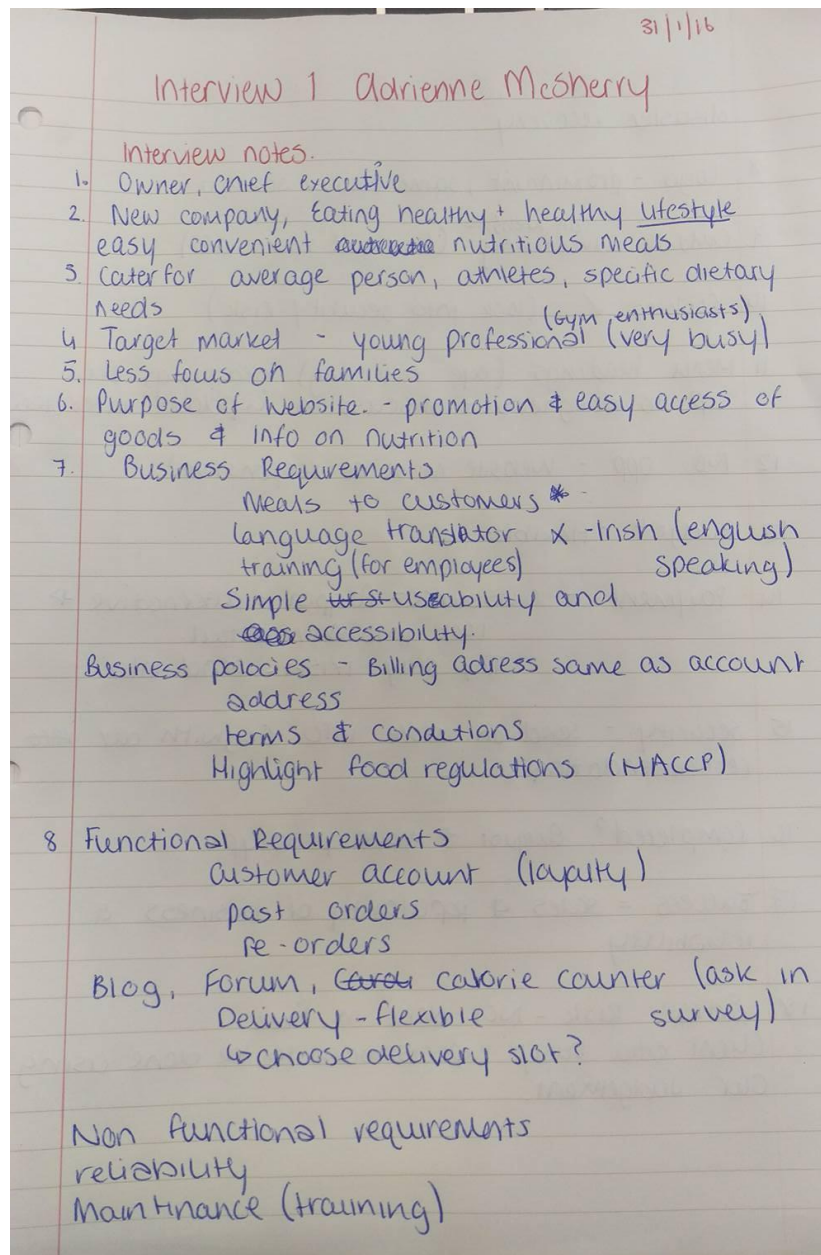 31/1/16
Interview 1 Adrienne McSherry
Interview notes.
1. Owner, chief executive
2. New company, Eating healthy + healthy lifestyle
easy convenient nutritious meals
3. Cater for average person, athletes, specific dietary
needs
(Gym enthusiasts)
4 Target market - young professional (very busy)
5. Less focus on families
6. Purpose of website. - promotion & easy access of
goods & info on nutrition
7. Business Requirements
Meals to customers *
language translator x -Irish (english
training (for employees) speaking)
Simple useability and
accessibility.
Business polocies - Billing adress same as account
address
terms & conditions
Highlight food regulations (HACCP)
8 Functional Requirements
Customer account (loyalty)
past orders
re-orders
Blog, Forum, calorie counter (ask in
Delivery - flexible survey)
↳ choose delivery slot?
Non functional requirements
reliability
Maintinance (training)